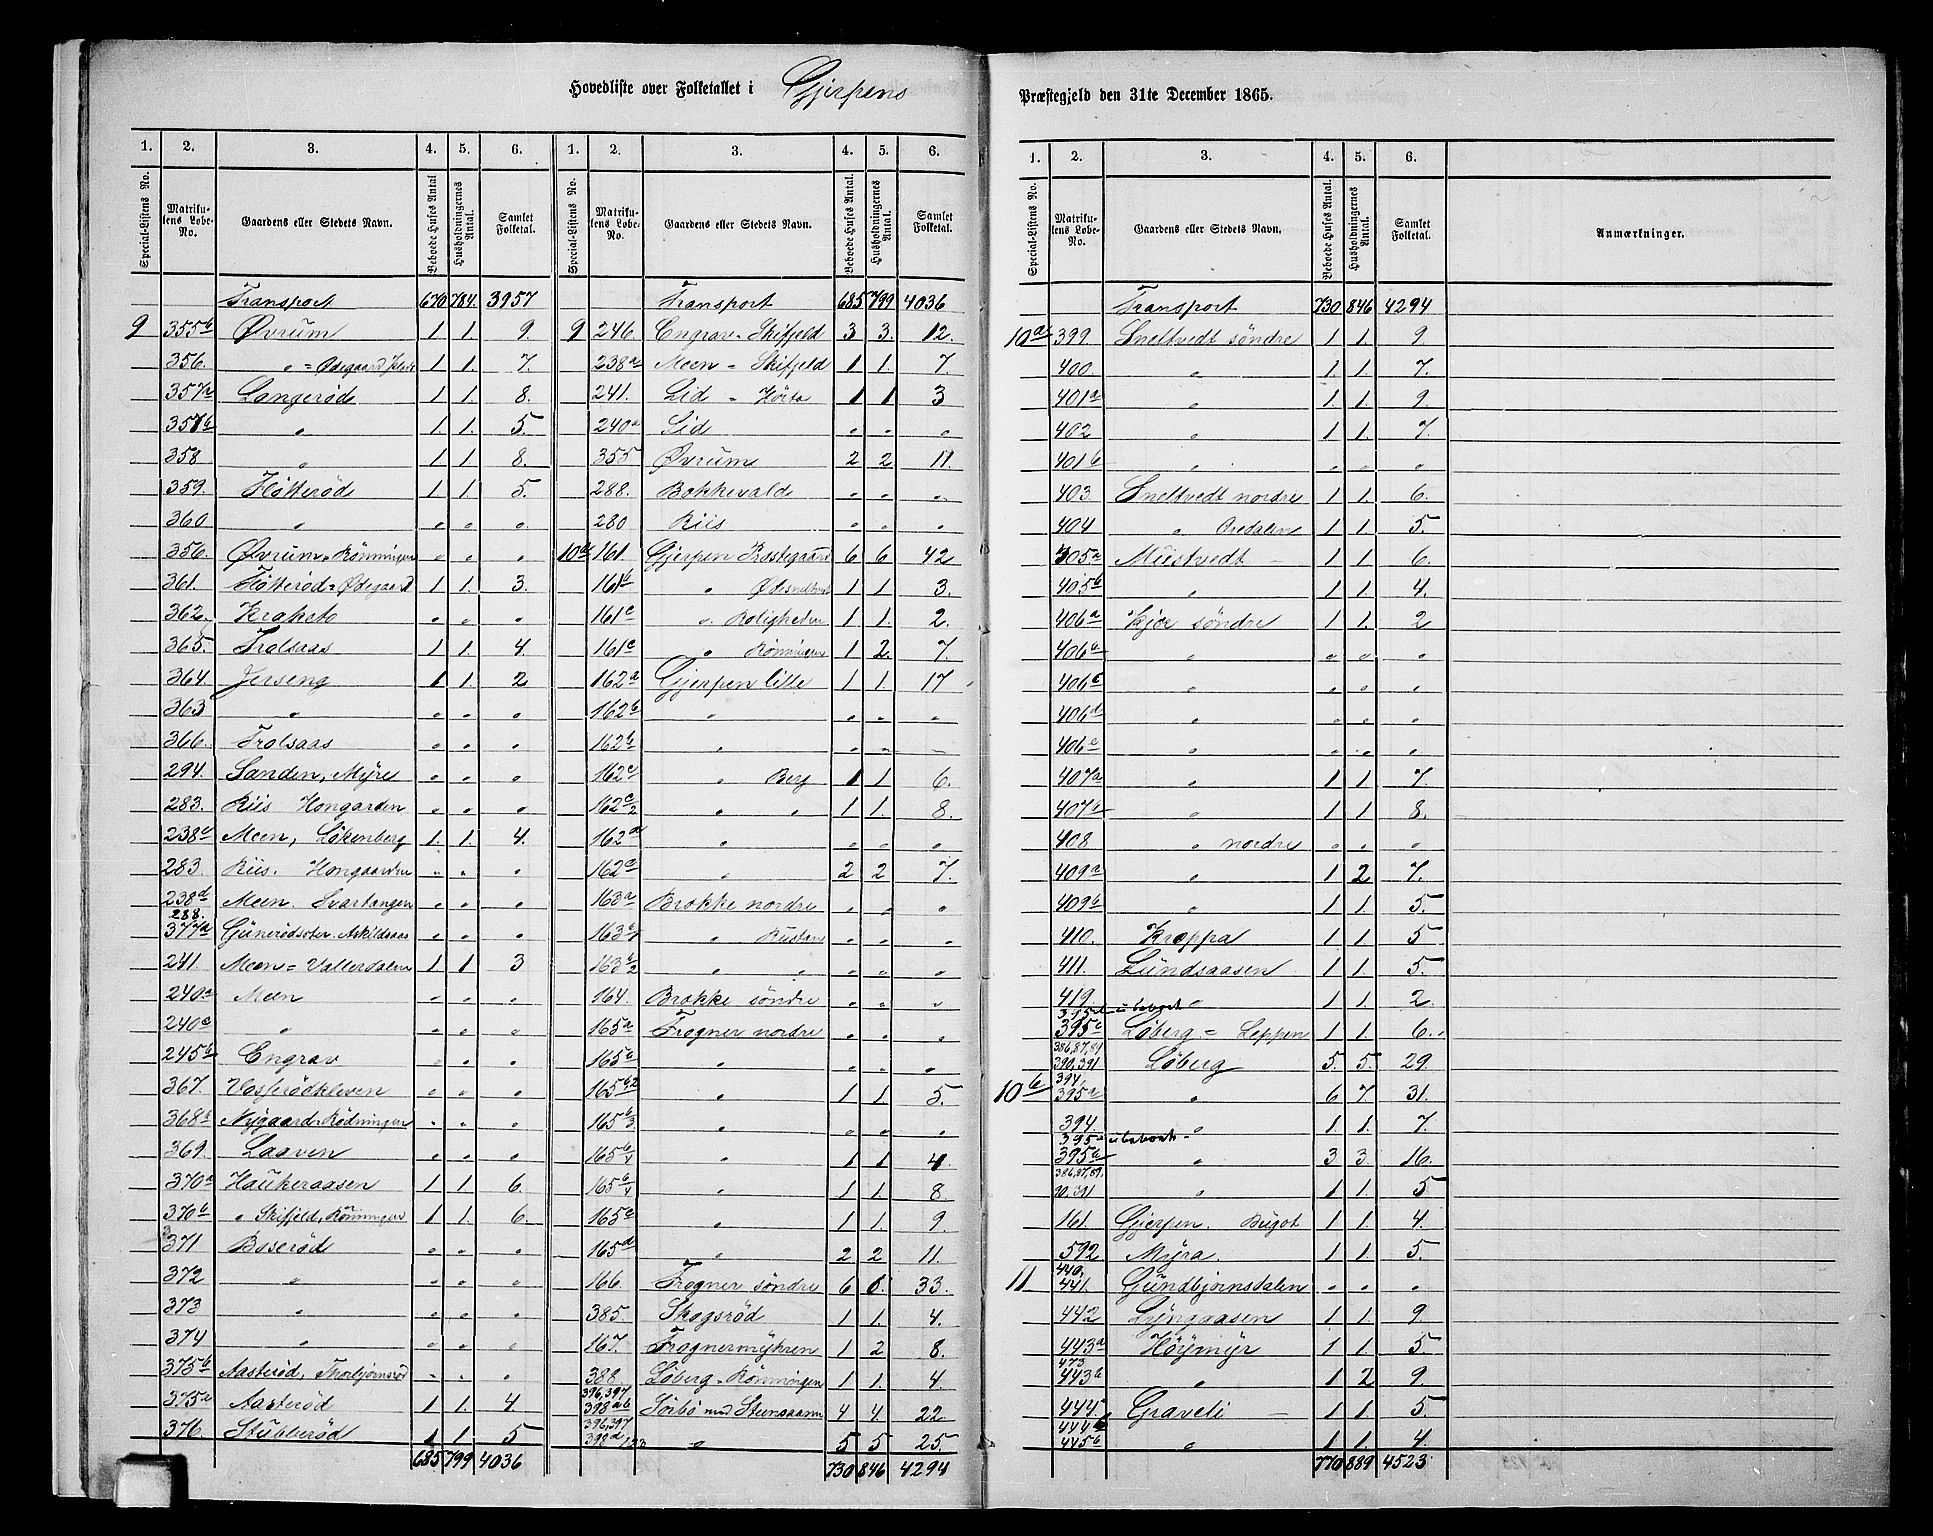 Hovedliste over Folketallet i Gjerpens
Præstegjeld den 31te December 1865.
1. 2. 3. 4. 5. 6. 1. 2. 3. 4. 5. 6.
Special-Listens No. Matrikulens Løbe-No. Gaardens eller Stedets Navn. Beboede Huses Antal Husholdningernes Antal. Samlet Folketal. Special-Listens No. Matrikulens Lobe-No. Gaardens eller Stedets Navn. Beboede Huses Antal. Husholdningernes Antal. Samlet Folketal.
Transport 670 784. 3957
9 355b Øvrum 1 1. 9.
356. „ = Ødegaard 1. 1. 7.
357a Langerød 1 1 8.
357b „ 1. 1. 5.
358 „ 1 1. 8.
359. Fløtterød 1 1 5.
360 „ „ „ „
356. Øvrum = Rönningen „ „ „
361. Fløtterød = Ødegaard 1 1. 3.
362. Kraketo „ „ „
365. Trolsaas 1 1. 4
364. Jerseng 1 1. 2
363 „ „ „ „
366. Trolsaas „ „ „
294. Sanden, Myre „ „ „
283. Riis Hongarden „ „ „
238c Meen, Lökenberg 1. 1. 4.
283 Riis. Hongaarden „ „ „
238d Meen. Svartangen „ „ „
288.
377a Gunerødsæter. Askildsaas „ „ „
241. Meen = Vallerdalen 1 1 3
240a Meen „ „ „
240c „ „ „ „
245b Engrav „ „ „
367. Vasserødkleven „ „ „
368a Nygaard = Rödningen „ „ „
369. Laaven „ „ „
370a Haukeraasen 1 1 6.
370b „ Skifjeld, Rönningen 1 1. 6.
371 Boserød „ „ „
372 „ „ „ „
373 „ „ „ „
374 „ „ „ „
375b Aasterød, Thorbjörnsrød „ „ „
375a Aasterød 1 1. 4.
376. Stubberød 1 1 5
685 799 4036
Transport 685 799 4036
9 246. Engrav = Skifjeld 3 3. 12.
238a Meen = Skifjeld 1 1. 7.
241. Lid = Hörta 1 1 3
240a Lid „ „ „
355 Øvrum 2 2 11.
288. Bokkevalde „ „ „
280 Riis „ „ „
10a 161. Gjerpen Præstegaard 6 6 42
161b „ 1 1 3.
161c „ Roligheden 1 1. 2.
161c „ Rönningen 1 2. 7.
162a Gjerpen lille 1 1. 17
162b „ „ „ „
162b „ „ „ „
162c „ Berg 1 1 6.
162c/2 „ „ 1 1. 8.
162d „ „ „ „
162e „ 2 2 7.
163a Brokke nordre „ „ „
163c/1 „ Rustan „ „ „
163c/2 „ „ „ „ „
164. Brokke söndre „ „ „
165a Frogner nordre „ „ „
165a „ „ „ „
165b/2 „ 1 1 5.
165b/3 „ „ „ „
165b/4 „ 1 1 4
165b/4 „ 1 1. 8.
165a „ 1 1. 9.
165d „ 2 2 11.
166 Frogner söndre 6 6. 33.
385 Skogsrød 1 1. 4.
167. Frognermyhren 1 2 8.
388. Løberg = Rönningen 1 1. 4.
396,397
398ab Sörbö med Stensaasen 4 4 22
396,397
398d „ 5 5 25.
730 846 4294
1. 2. 3. 4. 5. 6.
Special-Listens No. Matrikulens Lobe-No. Gaardens eller Stedets Navn. Beboede Huses Antal. Husholdningernes Antal. Samlet Folketal. Anmærkninger.
Transport 730 846 4294
10a 399. Sneltvedt söndre 1 1. 9
400. „ 1. 1. 7.
401a „ 1. 1. 9.
402 „ 1 1. 7.
401b „ „ „ „
403. Sneltvedt nordre 1 1. 6.
404 „ Oredalen 1 1. 5.
405a Mustvedt 1 1. 6.
405b „ 1 1. 4.
406a Kjær söndre 1 1. 2
406b „ „ „ „
406c „ „ „ „
406d „ „ „ „
406e „ „ „ „
407a „ 1 1 7.
407b „ 1 1. 8.
408 „ nordre „ „ „
409a „ 1 2 7.
409b „ 1 1. 5.
410. Kroppa 1 1. 5
411. Lundsaasen 1 1. 5.
419. „ 1 1. 2
395c Løberg = Leppen 1 1. 6.
386,87,89
390,391 Løberg 5. 5. 29.
394,
10b 395a „ 6 7 31.
394. „ 1 1. 7.
395a ubeboet
395b „ 3 3. 16.
386,87,89.
90,391 „ 1 1. 5
161. Gjerpen. Bugot 1 1. 4.
592 Myra. 1 1. 5.
440,
11 441. Gundbjörnsdalen „ „ „
442 Lyngaasen 1 1. 9
443a Höymyr 1 1. 5
473
443b „ 1 2 9.
444. Graveli 1 1. 5.
444b
445b „ 1 1. 4.
770 889 4523